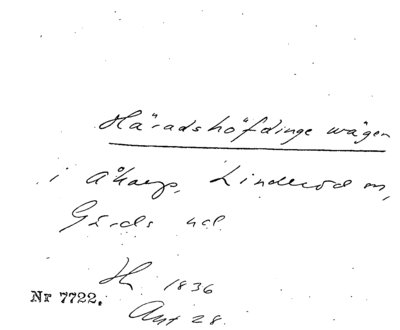 Häradshöfdinge wägen
i Åkarp, Linderöd m,
Gärds hd
1836
Nr 7722.
28.